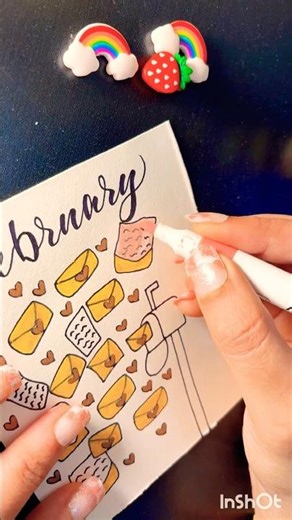 ebruary
InShOt